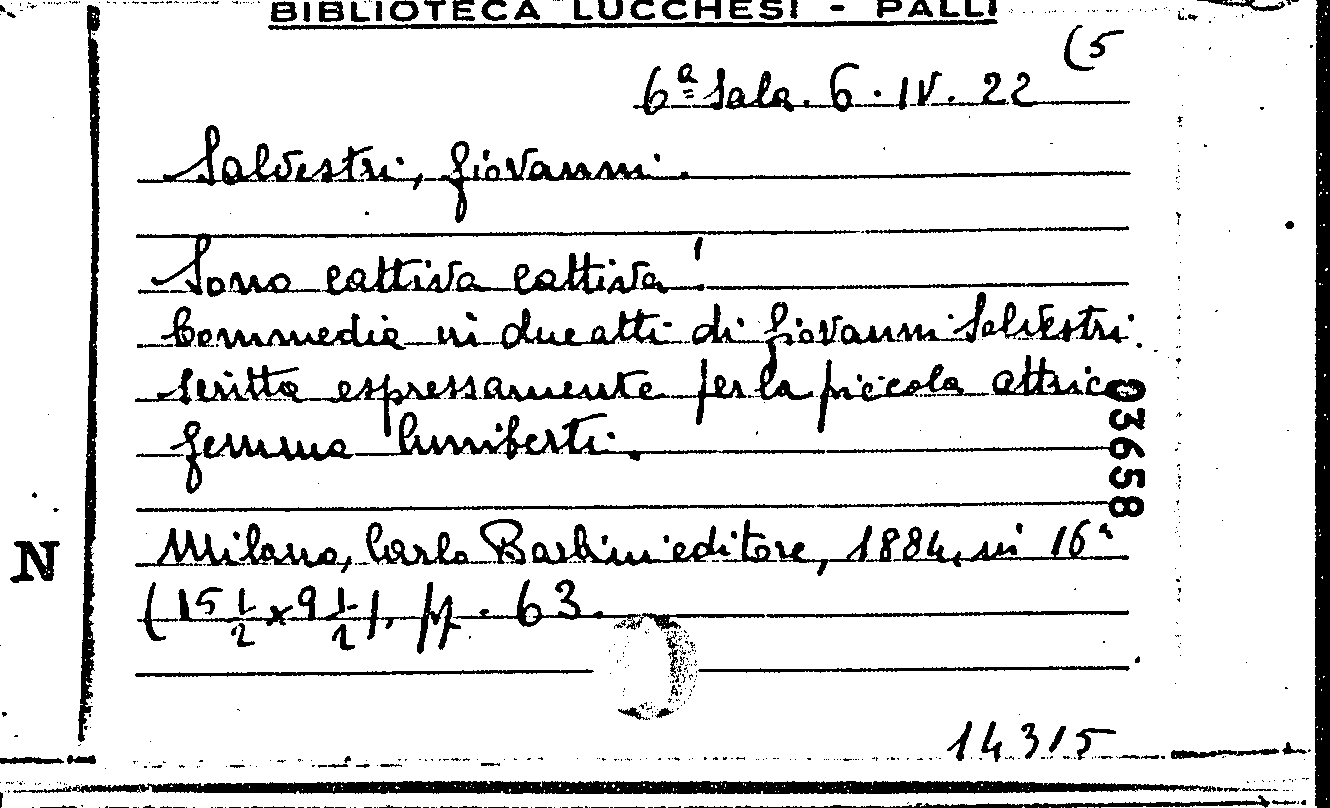 BIBLIOTECA LUCCHESI - PALLI
(5
6ª Sala. 6. IV. 22
Salvestri, Giovanni.
Sono cattiva cattiva!
Commedia in due atti di Giovanni Salvestri.
scritta espressamente per la piccola attrice
Gemma Cuniberti.
03658
N
Milano, Carlo Barbini editore, 1884, in 16°
(15 1/2 x 9 1/2), pp. 63.
14315